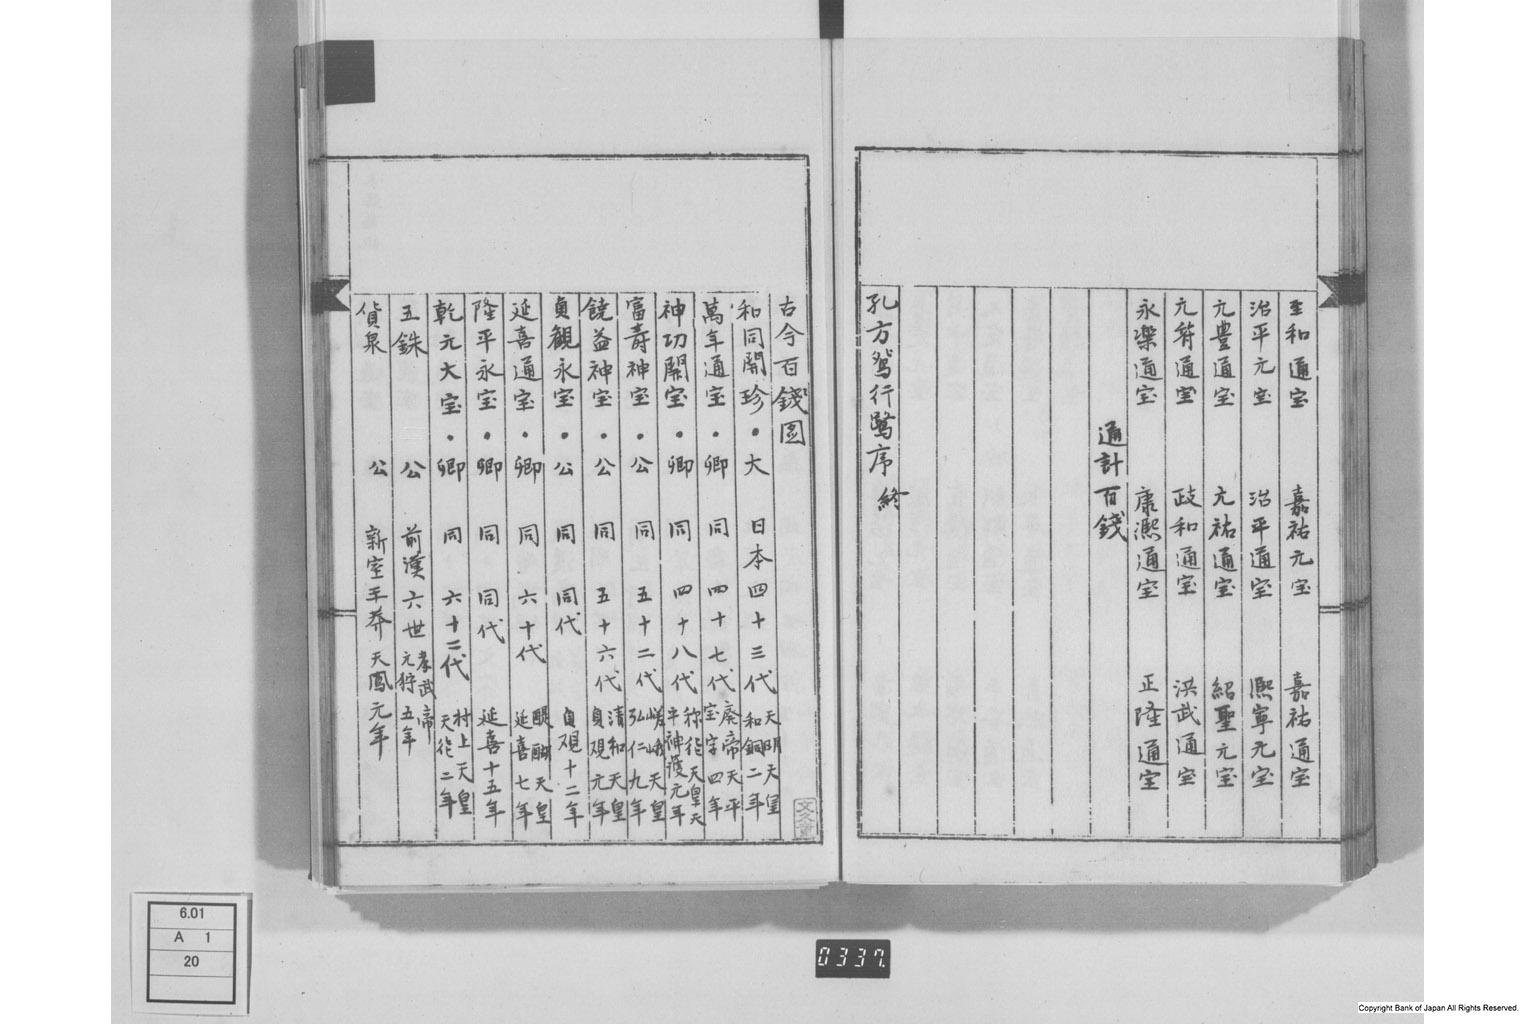 至和通宝 嘉祐元宝 嘉祐通宝
治平元宝 治平通宝 熈寧元宝
元豊通宝 元祐通宝 紹聖元宝
元符通宝 政和通宝 洪武通宝
永楽通宝 康熈通宝 正隆通宝
通計百錢
孔方鴛行鷺序 終
古今百錢図
和同開珍・大 日本四十三代 天明天皇 和銅二年
萬年通宝・卿 同 四十七代 廃帝天平宝字四年
神功開宝・卿 同 四十八代 称徳天皇天平神護元年
富壽神宝・公 同 五十二代 嵯峨天皇 弘仁九年
饒益神宝・公 同 五十六代 清和天皇 貞観元年
貞観永宝・公 同 同代 貞観十二年
延喜通宝・卿 同 六十代 醍醐天皇 延喜七年
隆平永宝・卿 同 同代 延喜十五年
乾元大宝・卿 同 六十二代 村上天皇 天徳二年
五銖 公 前漢六世 孝武帝 元狩五年
貨泉 公 新室王莽 天鳳元年
6.01
A 1
20
0337.
Copyright Bank of Japan All Rights Reserved.